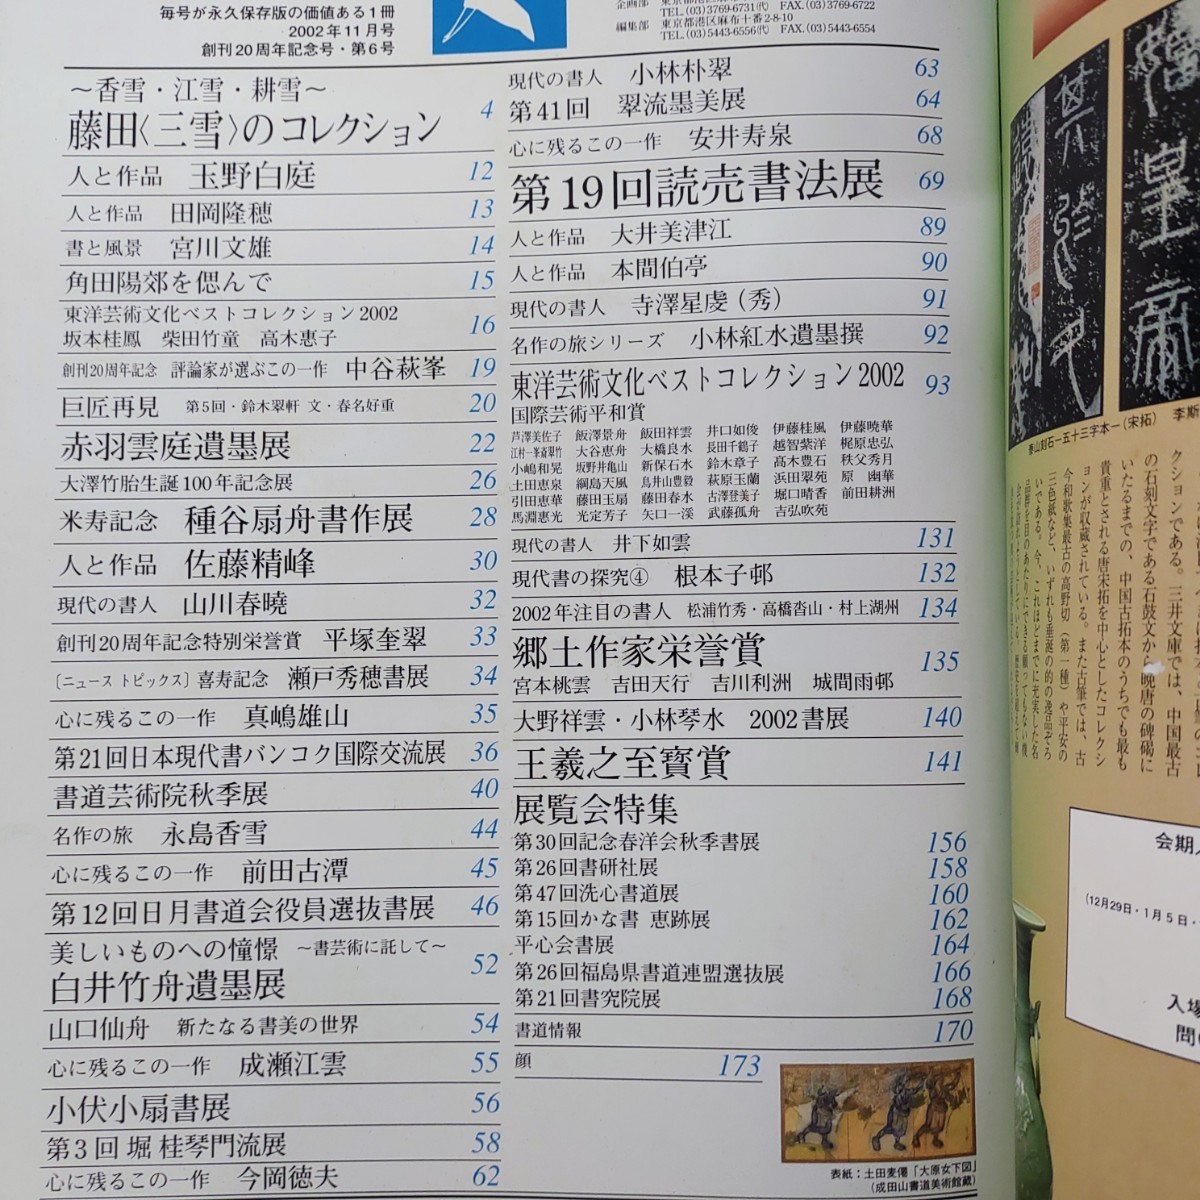 毎号が永久保存版の価値ある1冊
2002年11月号
創刊20周年記念号・第6号
TEL.(03)3769-6731(代) FAX.(03)3769-6722
編集部 東京都港区麻布十番2-8-10
TEL.(03)5443-6556(代) FAX.(03)5443-6554
～香雪・江雪・耕雪～
藤田〈三雪〉のコレクション 4
人と作品 玉野白庭 12
人と作品 田岡隆穂 13
書と風景 宮川文雄 14
角田陽郊を偲んで 15
東洋芸術文化ベストコレクション2002
坂本桂鳳 柴田竹童 高木惠子 16
創刊20周年記念 評論家が選ぶこの一作 中谷萩峯 19
巨匠再見 第5回・鈴木翠軒 文・春名好重 20
赤羽雲庭遺墨展 22
大澤竹胎生誕100年記念展 26
米寿記念 種谷扇舟書作展 28
人と作品 佐藤精峰 30
現代の書人 山川春曉 32
創刊20周年記念特別栄誉賞 平塚奎翠 33
[ニュース トピックス] 喜寿記念 瀬戸秀穂書展 34
心に残るこの一作 真嶋雄山 35
第21回日本現代書バンコク国際交流展 36
書道芸術院秋季展 40
名作の旅 永島香雪 44
心に残るこの一作 前田古潭 45
第12回日月書道会役員選抜書展 46
美しいものへの憧憬 ～書芸術に託して～
白井竹舟遺墨展 52
山口仙舟 新たなる書美の世界 54
心に残るこの一作 成瀬江雲 55
小伏小扇書展 56
第3回 堀 桂琴門流展 58
心に残るこの一作 今岡徳夫 62
現代の書人 小林朴翠 63
第41回 翠流墨美展 64
心に残るこの一作 安井寿泉 68
第19回読売書法展 69
人と作品 大井美津江 89
人と作品 本間伯亭 90
現代の書人 寺澤星虔(秀) 91
名作の旅シリーズ 小林紅水遺墨撰 92
東洋芸術文化ベストコレクション2002 93
国際芸術平和賞
芦澤美佐子 飯澤景舟 飯田祥雲 井口如俊 伊藤桂風 伊藤曉華
江村一筆斎翠竹 大谷恵舟 大橋良水 長田千鶴子 越智紫洋 梶原忠弘
小嶋和晃 坂野井亀山 新保石水 鈴木章子 高木豊石 秩父秀月
土田恵泉 綱島天風 鳥井山豊毅 萩原玉蘭 浜田翠苑 原 幽華
引田恵華 藤田玉扇 藤田春水 古澤登美子 堀口晴香 前田耕洲
馬淵惠光 光定芳子 矢口一溪 武藤孤舟 吉弘吹苑
現代の書人 井下如雲 131
現代書の探究④ 根本子邨 132
2002年注目の書人 松浦竹秀・高橋沓山・村上湖州 134
郷土作家栄誉賞 135
宮本桃雲 吉田天行 吉川利洲 城間雨邨
大野祥雲・小林琴水 2002書展 140
王羲之至寳賞 141
展覧会特集
第30回記念春洋会秋季書展 156
第26回書研社展 158
第47回洗心書道展 160
第15回かな書 恵跡展 162
平心会書展 164
第26回福島県書道連盟選抜展 166
第21回書究院展 168
書道情報 170
顔 173
表紙：土田麦僊「大原女下図」
(成田山書道美術館蔵)
泰山刻石一五十三字本一(宋拓) 李斯
クションである。三井文庫では、中国最古
の石刻文字である石鼓文から晩唐の碑碣に
いたるまでの、中国古拓本のうちでも最も
貴重とされる唐宋拓を中心としたコレクシ
ョンが収蔵されている。また古筆では、古
今和歌集最古の高野切（第一種）や平安の
三色紙など、いずれも垂涎の的の逸品ぞろ
いである。今、これほどまでに充実した名
品群を目のあたりにできる願ってもない機
会期
(12月29日・1月5日・
入場
問